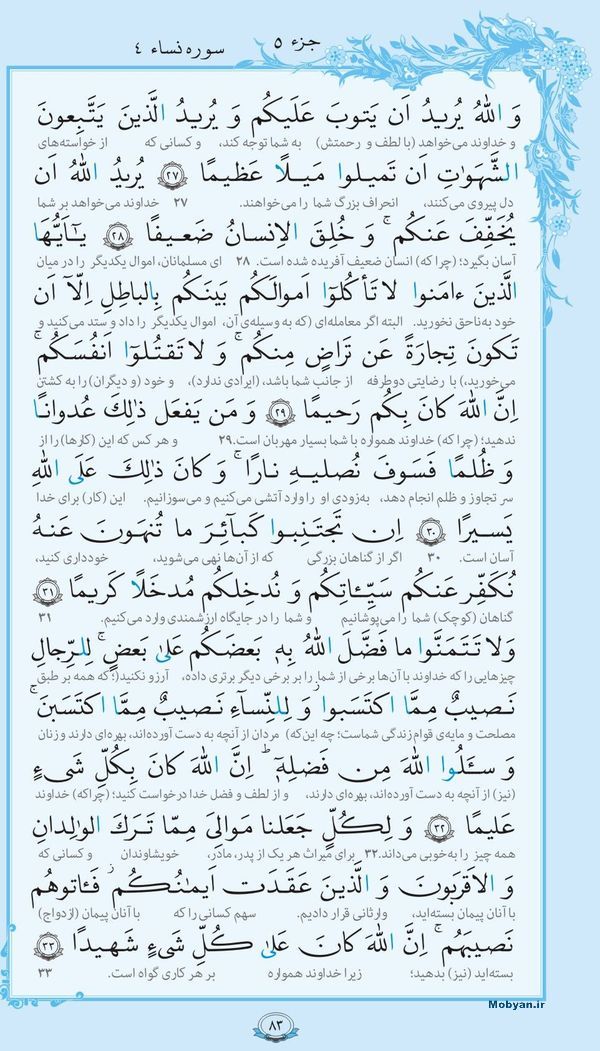 جزء ۵
سوره نساء ۴
وَ اللّٰهُ یُریدُ اَن یَتوبَ عَلَیکُم وَ یُریدُ الَّذینَ یَتَّبِعونَ
و خداوند می‌خواهد (با لطف و رحمتش) به شما توجه کند، و کسانی که از خواسته‌های
الشَّهَوٰتِ اَن تَمیلوا مَیلًا عَظیمًا ﴿۲۷﴾ یُریدُ اللّٰهُ اَن
دل پیروی می‌کنند، انحراف بزرگ شما را می‌خواهند. ۲۷ خداوند می‌خواهد بر شما
یُخَفِّفَ عَنکُم ۚ وَ خُلِقَ الاِنسانُ ضَعیفًا ﴿۲۸﴾ یـٰٓاَیُّهَا
آسان بگیرد؛ (چرا که) انسان ضعیف آفریده شده است. ۲۸ ای مسلمانان، اموال یکدیگر را در میان
الَّذینَ ءامَنوا لا تَأکُلوٓا اَموالَکُم بَینَکُم بِالباطِلِ اِلّآ اَن
خود به‌ناحق نخورید. البته اگر معامله‌ای (که به وسیله‌ی آن، اموال یکدیگر را داد و ستد می‌کنید و
تَکونَ تِجارَةً عَن تَراضٍ مِنکُم ۚ وَ لا تَقتُلوٓا اَنفُسَکُم ۚ
می‌خورید،) با رضایتی دوطرفه از جانب شما باشد، (ایرادی ندارد)، و خود (و دیگران) را به کشتن
اِنَّ اللّٰهَ کانَ بِکُم رَحیمًا ﴿۲۹﴾ وَ مَن یَفعَل ذٰلِکَ عُدوانًا
ندهید؛ (چرا که) خداوند همواره با شما بسیار مهربان است. ۲۹ و هر کس که این (کارها) را از
وَ ظُلمًا فَسَوفَ نُصلیهِ نارًا ۚ وَ کانَ ذٰلِکَ عَلَی اللّٰهِ
سر تجاوز و ظلم انجام دهد، به‌زودی او را وارد آتشی می‌کنیم و می‌سوزانیم. این (کار) برای خدا
یَسیرًا ﴿۳۰﴾ اِن تَجتَنِبوا کَبآئِرَ ما تُنهَونَ عَنهُ
آسان است. ۳۰ اگر از گناهان بزرگی که از آن‌ها نهی می‌شوید، خودداری کنید،
نُکَفِّر عَنکُم سَیِّـٔاتِکُم وَ نُدخِلکُم مُدخَلًا کَریمًا ﴿۳۱﴾
گناهان (کوچک) شما را می‌پوشانیم و شما را در جایگاه ارزشمندی وارد می‌کنیم. ۳۱
وَ لا تَتَمَنَّوا ما فَضَّلَ اللّٰهُ بِهٖ بَعضَکُم عَلیٰ بَعضٍ ۚ لِلرِّجالِ
چیزهایی را که خداوند با آن‌ها برخی از شما را بر برخی دیگر برتری داده، آرزو نکنید؛ (که همه بر طبق
نَصیبٌ مِمَّا اکتَسَبوا ۖ وَ لِلنِّسآءِ نَصیبٌ مِمَّا اکتَسَبنَ ۚ
مصلحت و مایه‌ی قوام زندگی شماست؛ چه این‌که) مردان از آنچه به دست آورده‌اند، بهره‌ای دارند و زنان
وَ سـَٔلُوا اللّٰهَ مِن فَضلِهٖٓ ۗ اِنَّ اللّٰهَ کانَ بِکُلِّ شَیءٍ
(نیز) از آنچه به دست آورده‌اند، بهره‌ای دارند، و از لطف و فضل خدا درخواست کنید؛ (چراکه) خداوند
عَلیمًا ﴿۳۲﴾ وَ لِکُلٍّ جَعَلنا مَوالِیَ مِمّا تَرَکَ الوٰلِدانِ
همه چیز را به‌خوبی می‌داند. ۳۲ برای میراث هر یک از پدر، مادر، خویشاوندان و کسانی که
وَ الاَقرَبونَ ۚ وَ الَّذینَ عَقَدَت اَیمٰنُکُم فَـٔاتوهُم
با آنان پیمان بسته‌اید، وارثانی قرار دادیم. سهم کسانی را که با آنان پیمان (ازدواج)
نَصیبَهُم ۚ اِنَّ اللّٰهَ کانَ عَلیٰ کُلِّ شَیءٍ شَهیدًا ﴿۳۳﴾
بسته‌اید (نیز) بدهید؛ زیرا خداوند همواره بر هر کاری گواه است. ۳۳
۸۳
Mobyan.ir